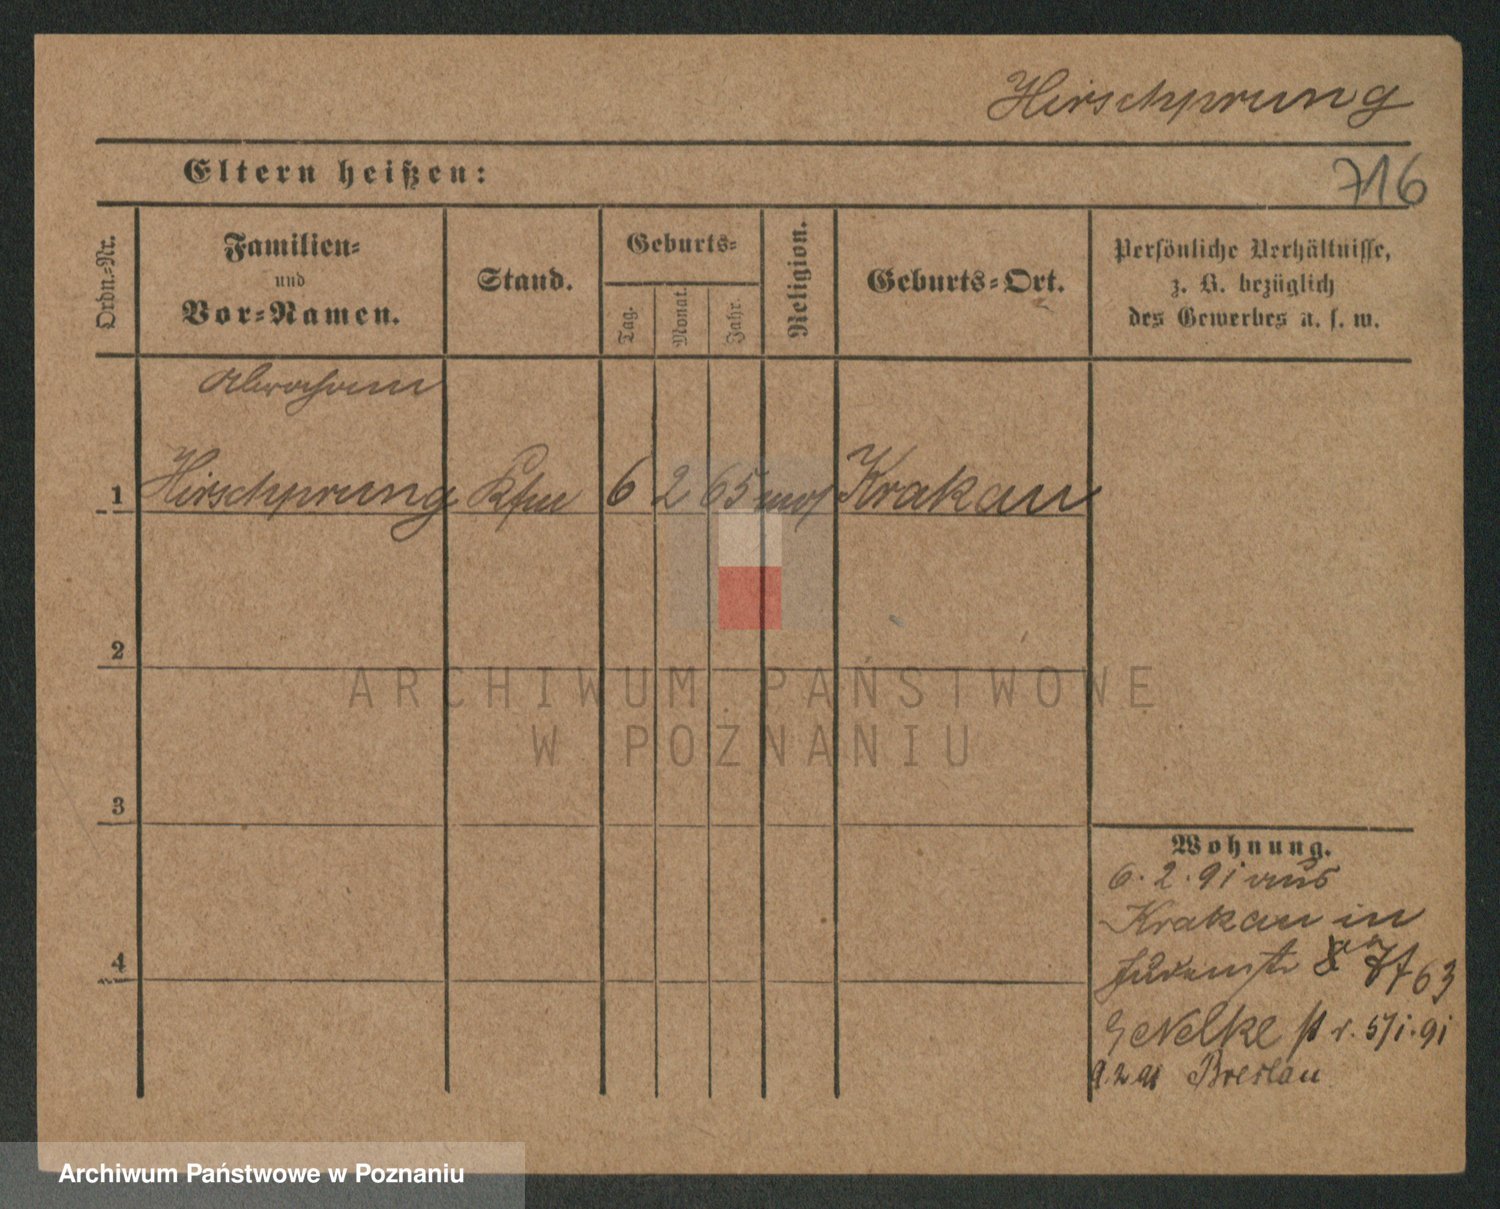 Hirschprung
Eltern heißen:
716
Ordn.-Nr.
Familien-
und
Vor-Namen.
Stand.
Geburts-
Tag.
Monat.
Jahr.
Religion.
Geburts-Ort.
Persönliche Verhältnisse,
z. B. bezüglich
des Gewerbes u. s. w.
Abraham
1 Hirschprung Kfm 6 2 65 mos Krakau
2
ARCHIWUM PAŃSTWOWE
W POZNANIU
3
Wohnung.
6.2.91 aus
Krakau in
4
Judenstr 8
Nelke r. 5/1.91
9.2.91 Breslau
Archiwum Państwowe w Poznaniu